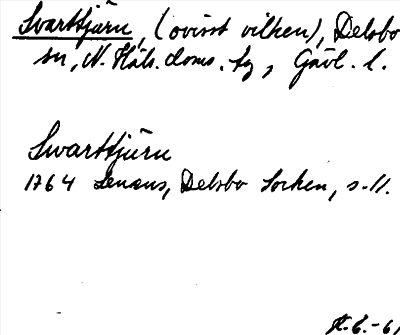 Svarttjärn, (ovisst vilken), Delsbo
sn, N. Häls. doms. tg, Gävl. l.
Swarttjärn
1764 Lenæus, Delsbo Socken, s. 11.